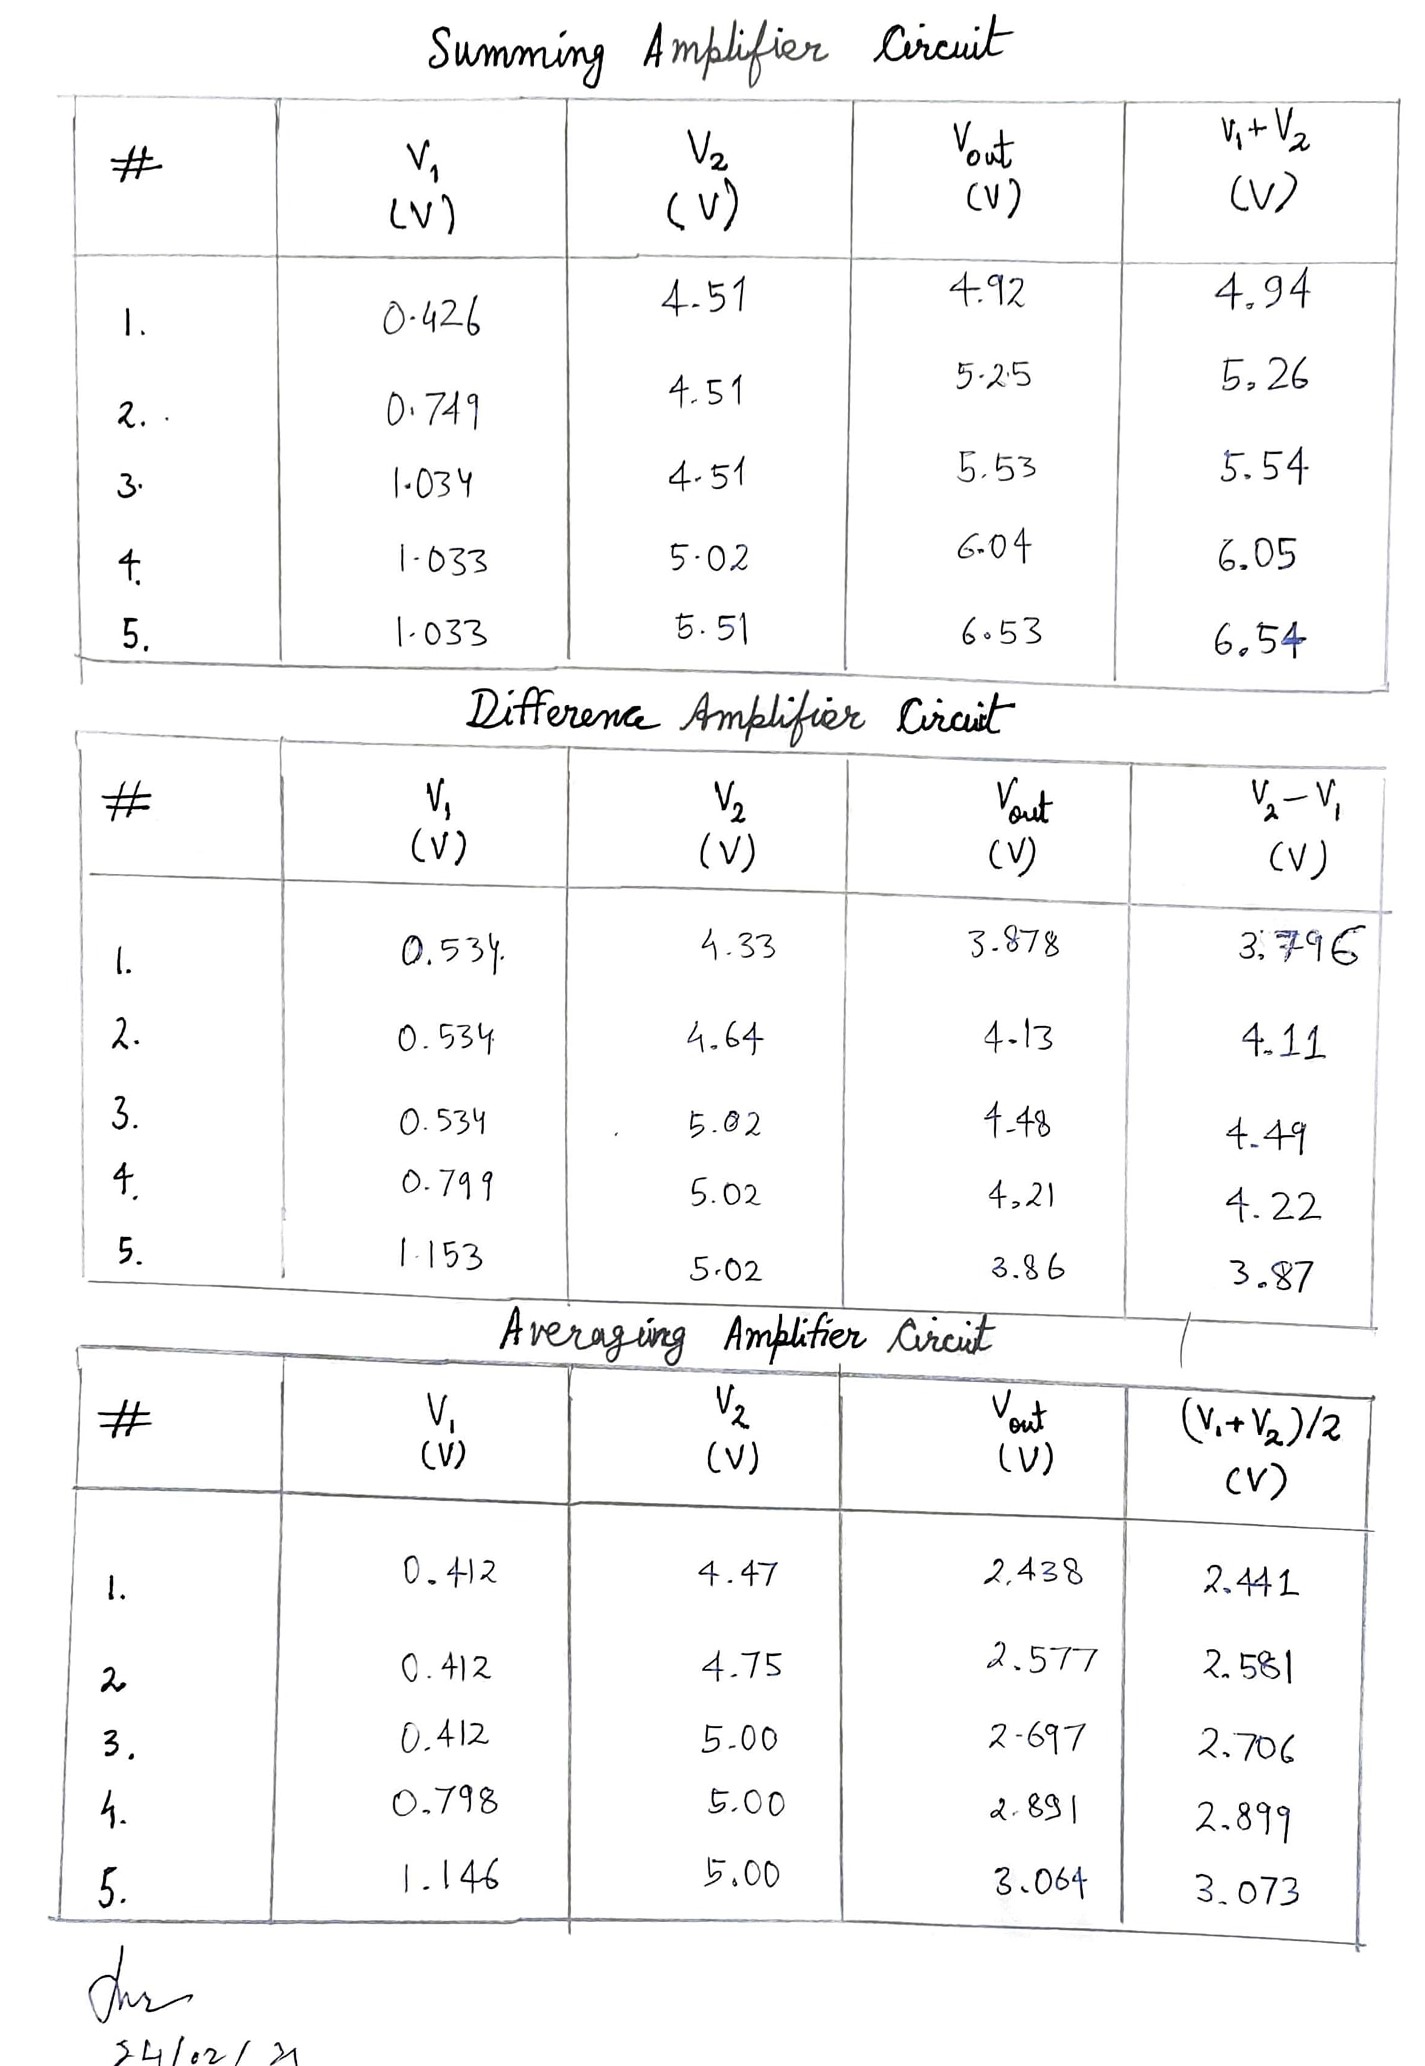 Summing Amplifier Circuit
# V₁ (V) V₂ (V) Vout (V) V₁+V₂ (V)
1. 0.426 4.51 4.92 4.94
2. 0.749 4.51 5.25 5.26
3. 1.034 4.51 5.53 5.54
4. 1.033 5.02 6.04 6.05
5. 1.033 5.51 6.53 6.54
Difference Amplifier Circuit
# V₁ (V) V₂ (V) Vout (V) V₂-V₁ (V)
1. 0.534 4.33 3.878 3.796
2. 0.534 4.64 4.13 4.11
3. 0.534 5.02 4.48 4.49
4. 0.799 5.02 4.21 4.22
5. 1.153 5.02 3.86 3.87
Averaging Amplifier Circuit
# V₁ (V) V₂ (V) Vout (V) (V₁+V₂)/2 (V)
1. 0.412 4.47 2.438 2.441
2 0.412 4.75 2.577 2.581
3. 0.412 5.00 2.697 2.706
4. 0.798 5.00 2.891 2.899
5. 1.146 5.00 3.064 3.073